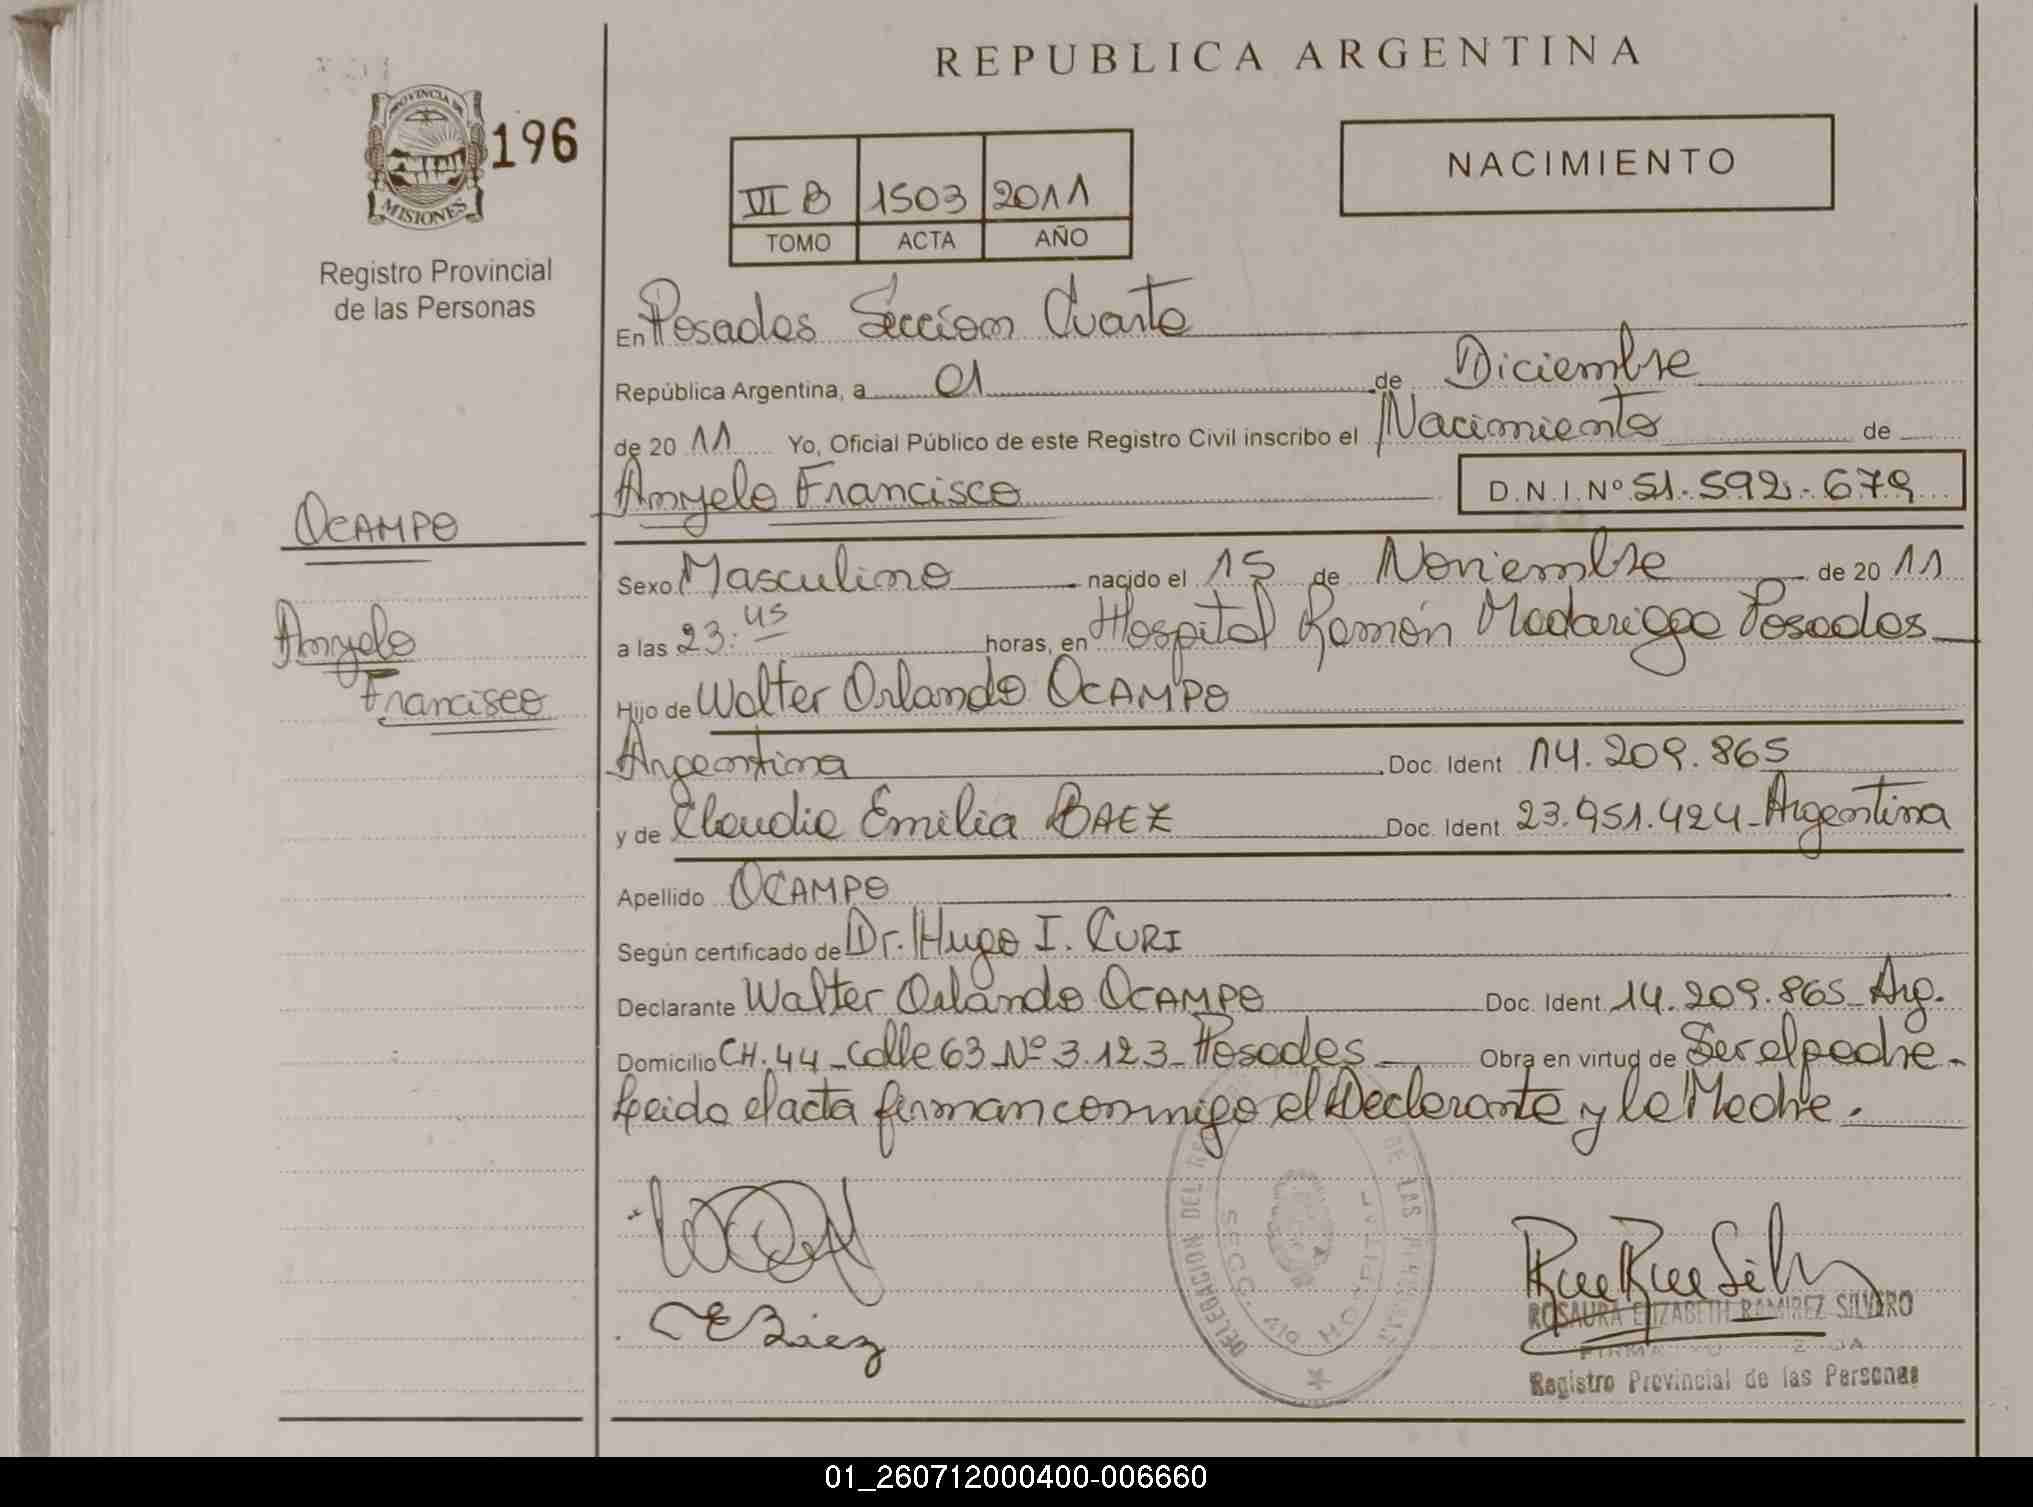 REPUBLICA ARGENTINA
PROVINCIA DE
MISIONES
196
Registro Provincial
de las Personas
NACIMIENTO
VI B 1503 2011
TOMO ACTA AÑO
En Posadas Sección Cuarta
República Argentina, a 01 de Diciembre
de 20 11 Yo, Oficial Público de este Registro Civil inscribo el Nacimiento de
Angelo Francisco D.N.I. Nº 51.592.679
OCAMPO
Angelo
Francisco
Sexo Masculino nacido el 15 de Noviembre de 20 11
a las 23:45 horas, en Hospital Ramón Madariaga Posadas
Hijo de Walter Orlando OCAMPO
Argentina Doc. Ident 14.209.865
y de Claudia Emilia BAEZ Doc. Ident 23.951.424 - Argentina
Apellido OCAMPO
Según certificado de Dr. Hugo I. CURI
Declarante Walter Orlando OCAMPO Doc. Ident. 14.209.865 - Arg.
Domicilio CH. 44 - Calle 63 Nº 3.123 - Posadas Obra en virtud de Ser el padre -
Leida el acta firman conmigo el Declarante y la Madre.
DELEGACION DEL DE LAS
SECC.
E Báez
ROSAURA ELIZABETH RAMIREZ SILVERO
Registro Provincial de las Personas
01_260712000400-006660